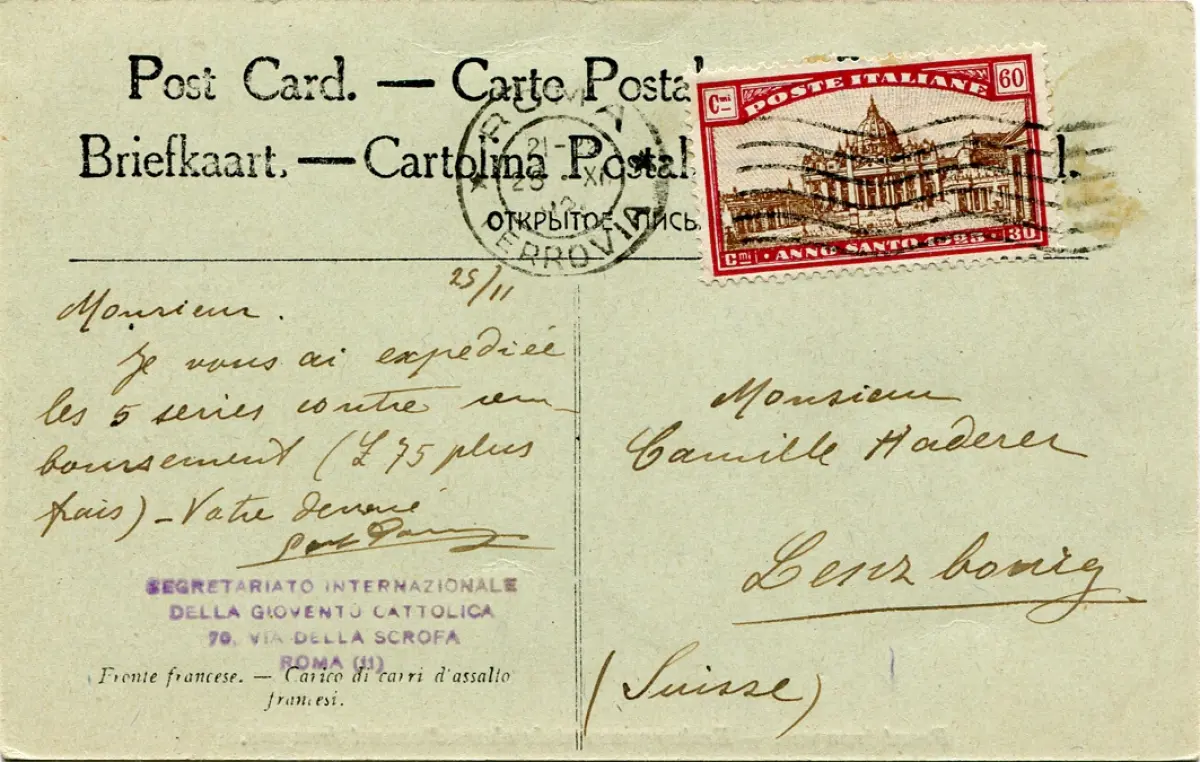 Post Card. — Carte Postal
Briefkaart. — Cartolina Postal. l.
ОТКРЫТОЕ ПИСЬ
ROMA
21-
25 XI
FERROVIA
Cmi POSTE ITALIANE 60
Cmi · ANNO SANTO 1925 · 30
25/11
Monsieur.
Je vous ai expédiée
les 5 series contre rem-
boursement (£ 75 plus
frais) – Votre devoué
SEGRETARIATO INTERNAZIONALE
DELLA GIOVENTÙ CATTOLICA
70, VIA DELLA SCROFA
ROMA (11)
Fronte francese. — Carico di carri d'assalto
francesi.
Monsieur
Camille Haderer
Lenzbourg
(Suisse)